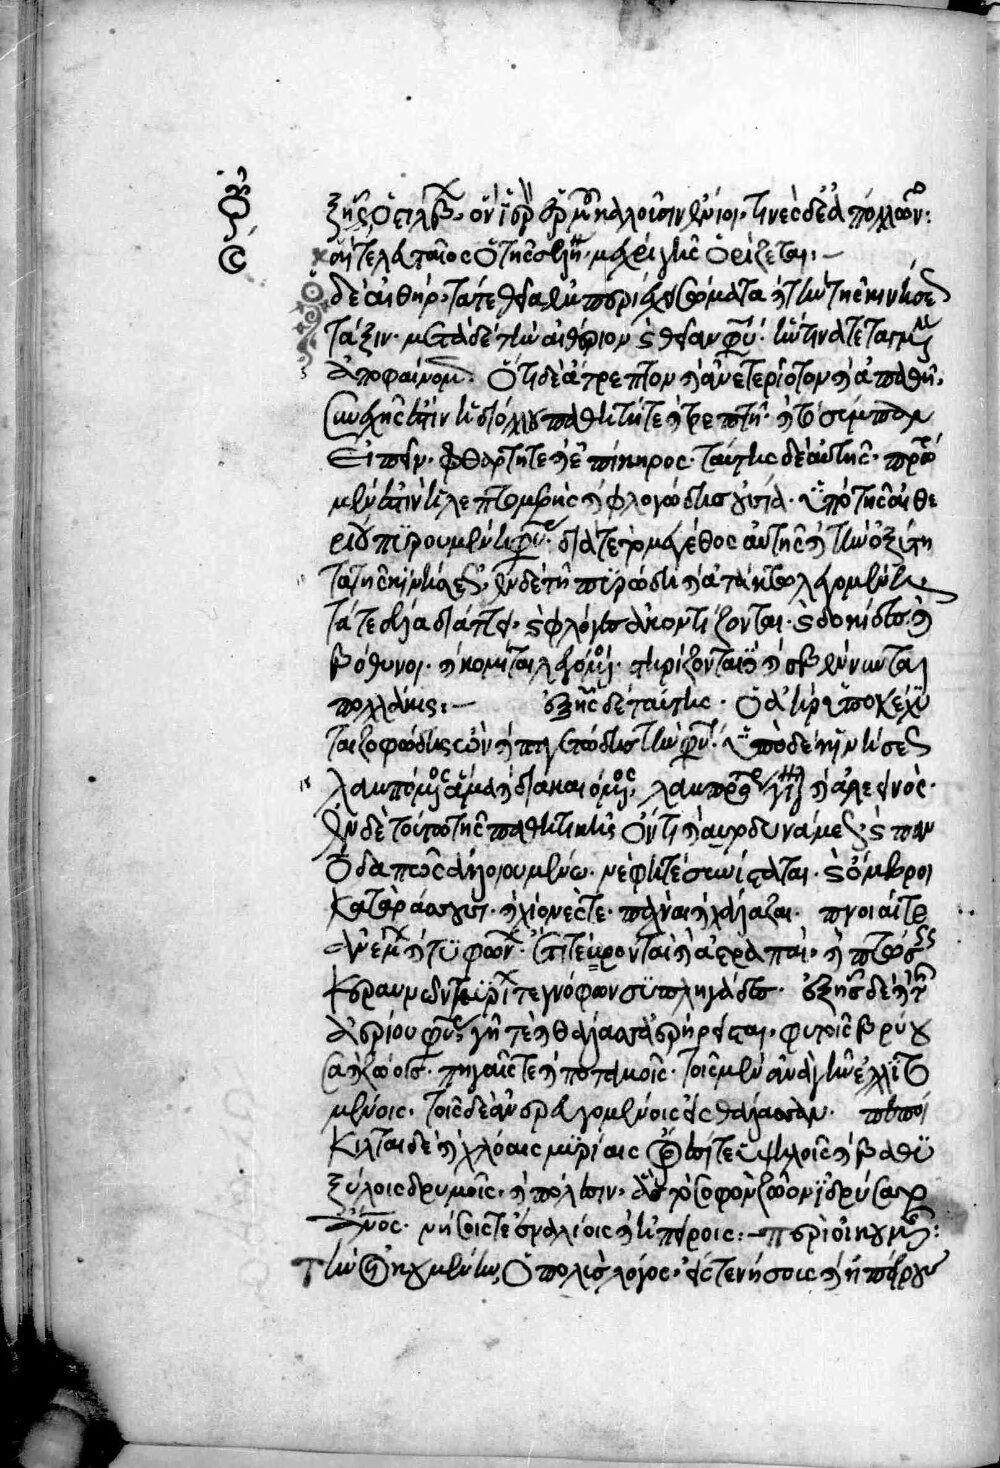 ξῆς ὁ στίλβων, ὃν ἱερὸν ἑρμοῦ καλοῦσιν ἔνιοι· τινὲς δὲ ἀπόλλωνος:
τελευταῖος ὁ τῆς σελήνης, μέχρι γῆς ὁρίζεται:—
ὁ δὲ αἰθήρ, τά τε θεῖα ἐμπεριέχει σώματα καὶ τὴν τῆς κινήσεως
τάξιν· μετὰ δὲ τὴν αἰθέριον καὶ θείαν φύσιν· ἥντινα τεταγμένην
ἀποφαίνομεν· ἔτι δὲ ἄτρεπτον καὶ ἀνετεροίωτον καὶ ἀπαθῆ,
συνεχής ἐστιν ἡ δι' ὅλου παθητή τε καὶ τρεπτή· καὶ τὸ σύμπαν
εἰπεῖν· φθαρτή τε καὶ ἐπίκηρος· ταύτης δὲ αὐτῆς· πρώτη
μέν ἐστιν ἡ λεπτομερὴς καὶ φλογώδης οὐσία· ὑπὸ τῆς αἰθε
ρίου πυρουμένη φύσεως· διά τε τὸ μέγεθος αὐτῆς καὶ τὴν ὀξύτη
τα τῆς κινήσεως, ἐν δὲ τῇ πυρώδει καὶ ἀτάκτῳ λεγομένῃ
τά τε σέλα διάττει· καὶ φλόγες ἀκοντίζονται· καὶ δοκίδες καὶ
βόθυνοι· καὶ κομῆται λεγόμενοι· στηρίζονται καὶ σβέννυνται
πολλάκις:— ἑξῆς δὲ ταύτης· ὁ ἀὴρ ὑποκέχυ
ται ζοφώδης ὢν καὶ παγετώδης τὴν φύσιν· ὑπὸ δὲ κινήσεως
λαμπόμενος ἅμα καὶ διακαιόμενος, λαμπρός τε γίνεται καὶ ἀλεεινὸς·
ἐν δὲ τούτῳ τῆς παθητικῆς ὄντι καὶ αὐτῷ δυνάμεως· καὶ παν
τοδαπῶς ἀλλοιουμένῳ· νέφη τε συνίσταται· καὶ ὄμβροι
καταράσσουσι· καὶ χιόνες τε· πάχναι καὶ χάλαζαι· πνοιαί τε
ἀνέμων καὶ τυφώνων· ἔτι τε βρονταὶ καὶ ἀστραπαὶ· καὶ πτώσεις
κεραυνῶν μυρίων τε γνόφων συμπληγάδες· ἑξῆς δὲ καὶ τῆς
ἀερίου φύσεως γῆ τε καὶ θάλασσα ἐρήρεισται· φυτοῖς βρύου
σα καὶ ζώοις· πηγαῖς τε καὶ ποταμοῖς· τοῖς μὲν ἀνὰ γῆν ἑλιττο
μένοις· τοῖς δὲ ἀνερευγομένοις εἰς θάλασσαν· πεποί
κιλται δὲ καὶ χλόαις μυρίαις ὄρεσί τε ὑψηλοῖς καὶ βαθυ
ξύλοις δρυμοῖς· καὶ πόλεσιν· ἃς τὸ σοφὸν ζῷον ἱδρύσατο
ἄνθρωπος· νήσοις τε ἐναλίοις καὶ ἠπείροις:— περὶ οἰκουμένης:
Τὴν οἰκουμένην, ὁ πολὺς λόγος, εἴς τε νήσους καὶ ἠπείρους